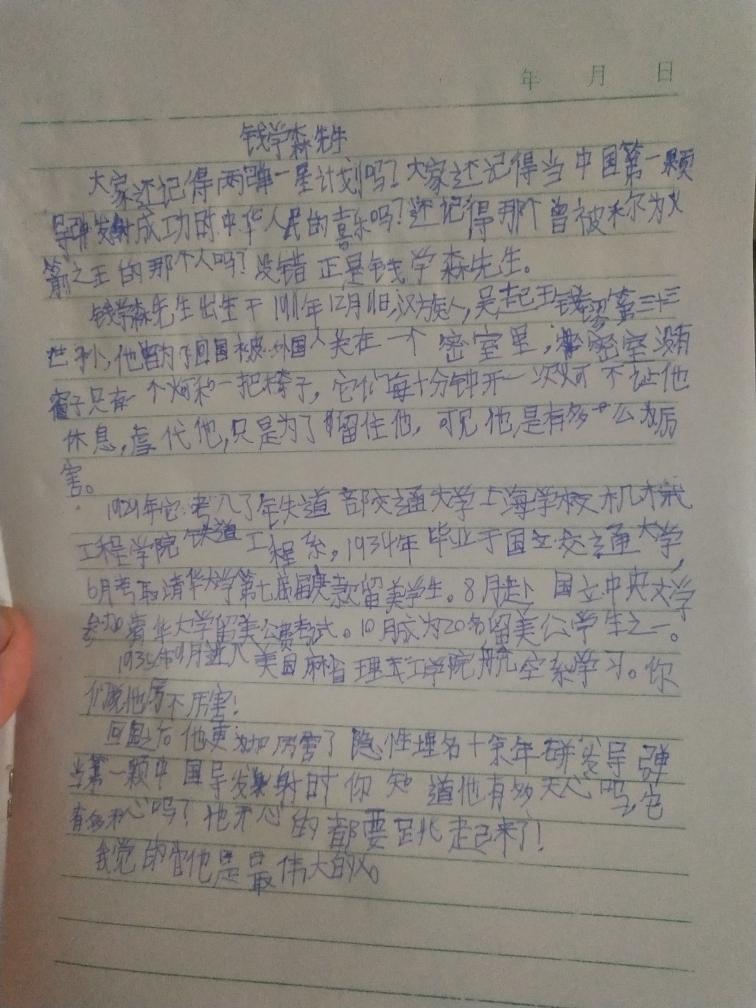 年 月 日
钱学森先生
大家还记得两弹一星计划吗？大家还记得当中国第一颗
导弹发射成功时中华人民的喜乐吗？还记得那个曾被称为火
箭之王的那个人吗？没错正是钱学森先生。
钱学森先生出生于1911年12月11日，汉族人，吴起王钱镠第三十三
世孙，他曾为了回国被外国人关在一个密室里，密室没有
窗子只有一个灯和一把椅子，它们每十分钟开一次灯不让他
休息，虐代他，只是为了留住他，可见他是有多么厉
害。
1929年它考入了铁道部交通大学上海学校机械
工程学院铁道工程系，1934年毕业于国立交通大学，
6月考取清华大学第七届庚款留美学生。8月赴国立中央大学
参加清华大学留美公费考试。10月成为20名留美公学生之一。
1935年9月进入美国麻省理工学院航空系学习。你
们说他厉不厉害！
回国之后他更加厉害了隐性埋名十余年研发导弹
当第一颗中国导发射时你知道他有多天心吗，它
有多开心吗？他开心的都要跳起来了！
我觉的他是最伟大的人。